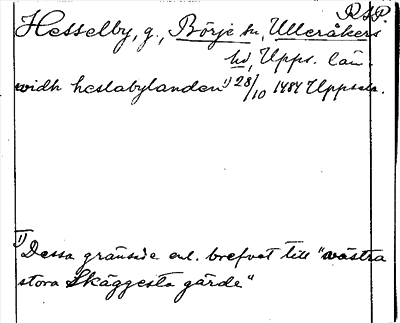 R A P.
Hesselby, g., Börje sn, Ulleråkers
hd, Upps. län.
widh heslabylanden 1) 28/10 1484 Uppsala.
1) Dessa gränsade enl. brefvet till "västra
stora Skäggesta gärde"